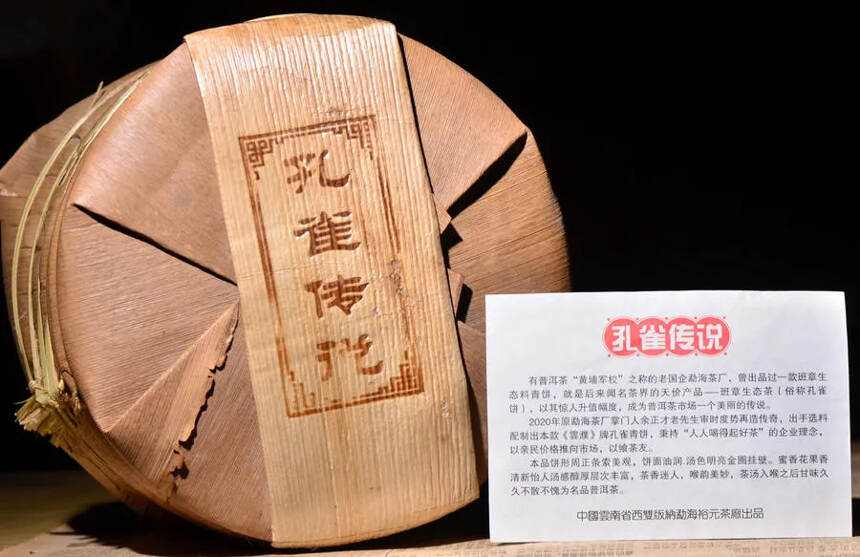 孔雀传说
孔雀传说
有普洱茶“黄埔军校”之称的老国企勐海茶厂，曾出品过一款班章生
态料青饼，就是后来闻名茶界的天价产品——班章生态茶（俗称孔雀
饼），以其惊人升值幅度，成为普洱茶市场一个美丽的传说。
2020年原勐海茶厂掌门人余正才老先生审时度势再造传奇，出手选料
配制出本款《雲濮》牌孔雀青饼，秉持“人人喝得起好茶”的企业理念，
以亲民价格推向市场，以飨茶友。
本品饼形周正条索美观，饼面油润.汤色明亮金圈挂壁。蜜香花果香
清新怡人汤感醇厚层次丰富，茶香迷人，喉韵美妙，茶汤入喉之后甘味久
久不散不愧为名品普洱茶。
中國雲南省西雙版納勐海裕元茶廠出品